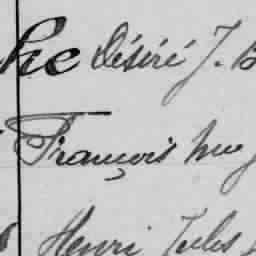 he Désiré J. B
François
Henri Jules